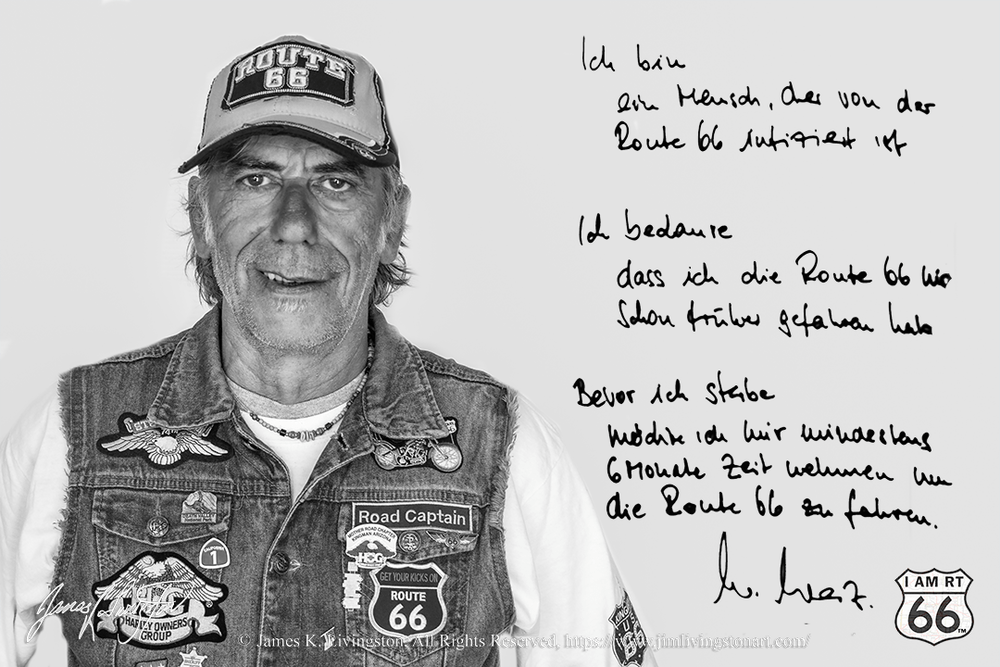 ROUTE
66
Ich bin
ein Mensch, der von der
Route 66 infiziert ist
Ich bedaure
dass ich die Route 66
schon früher gefahren habe
Bevor ich sterbe
möchte ich mir mindestens
6 Monate Zeit nehmen um
die Route 66 zu fahren.
Road Captain
MOTHER ROAD CHAPTER
KINGMAN ARIZONA
HOG
CALIFORNIA
1
GET YOUR KICKS ON
ROUTE
66
HARLEY OWNERS
GROUP
I AM RT
66
TM
© James K. Livingston, All Rights Reserved, https://www.jimlivingstonart.com/